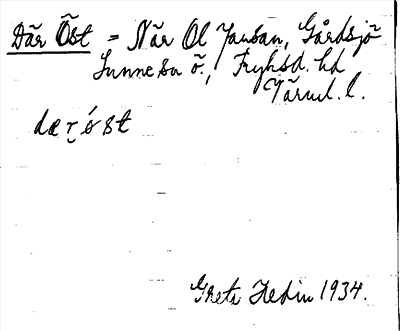 Där Öst = När Ol Jansan, Gårdsjö
Sunne sn ö., Fryksd. hd
Värml. l.
dæröst
Greta Hedin 1934.